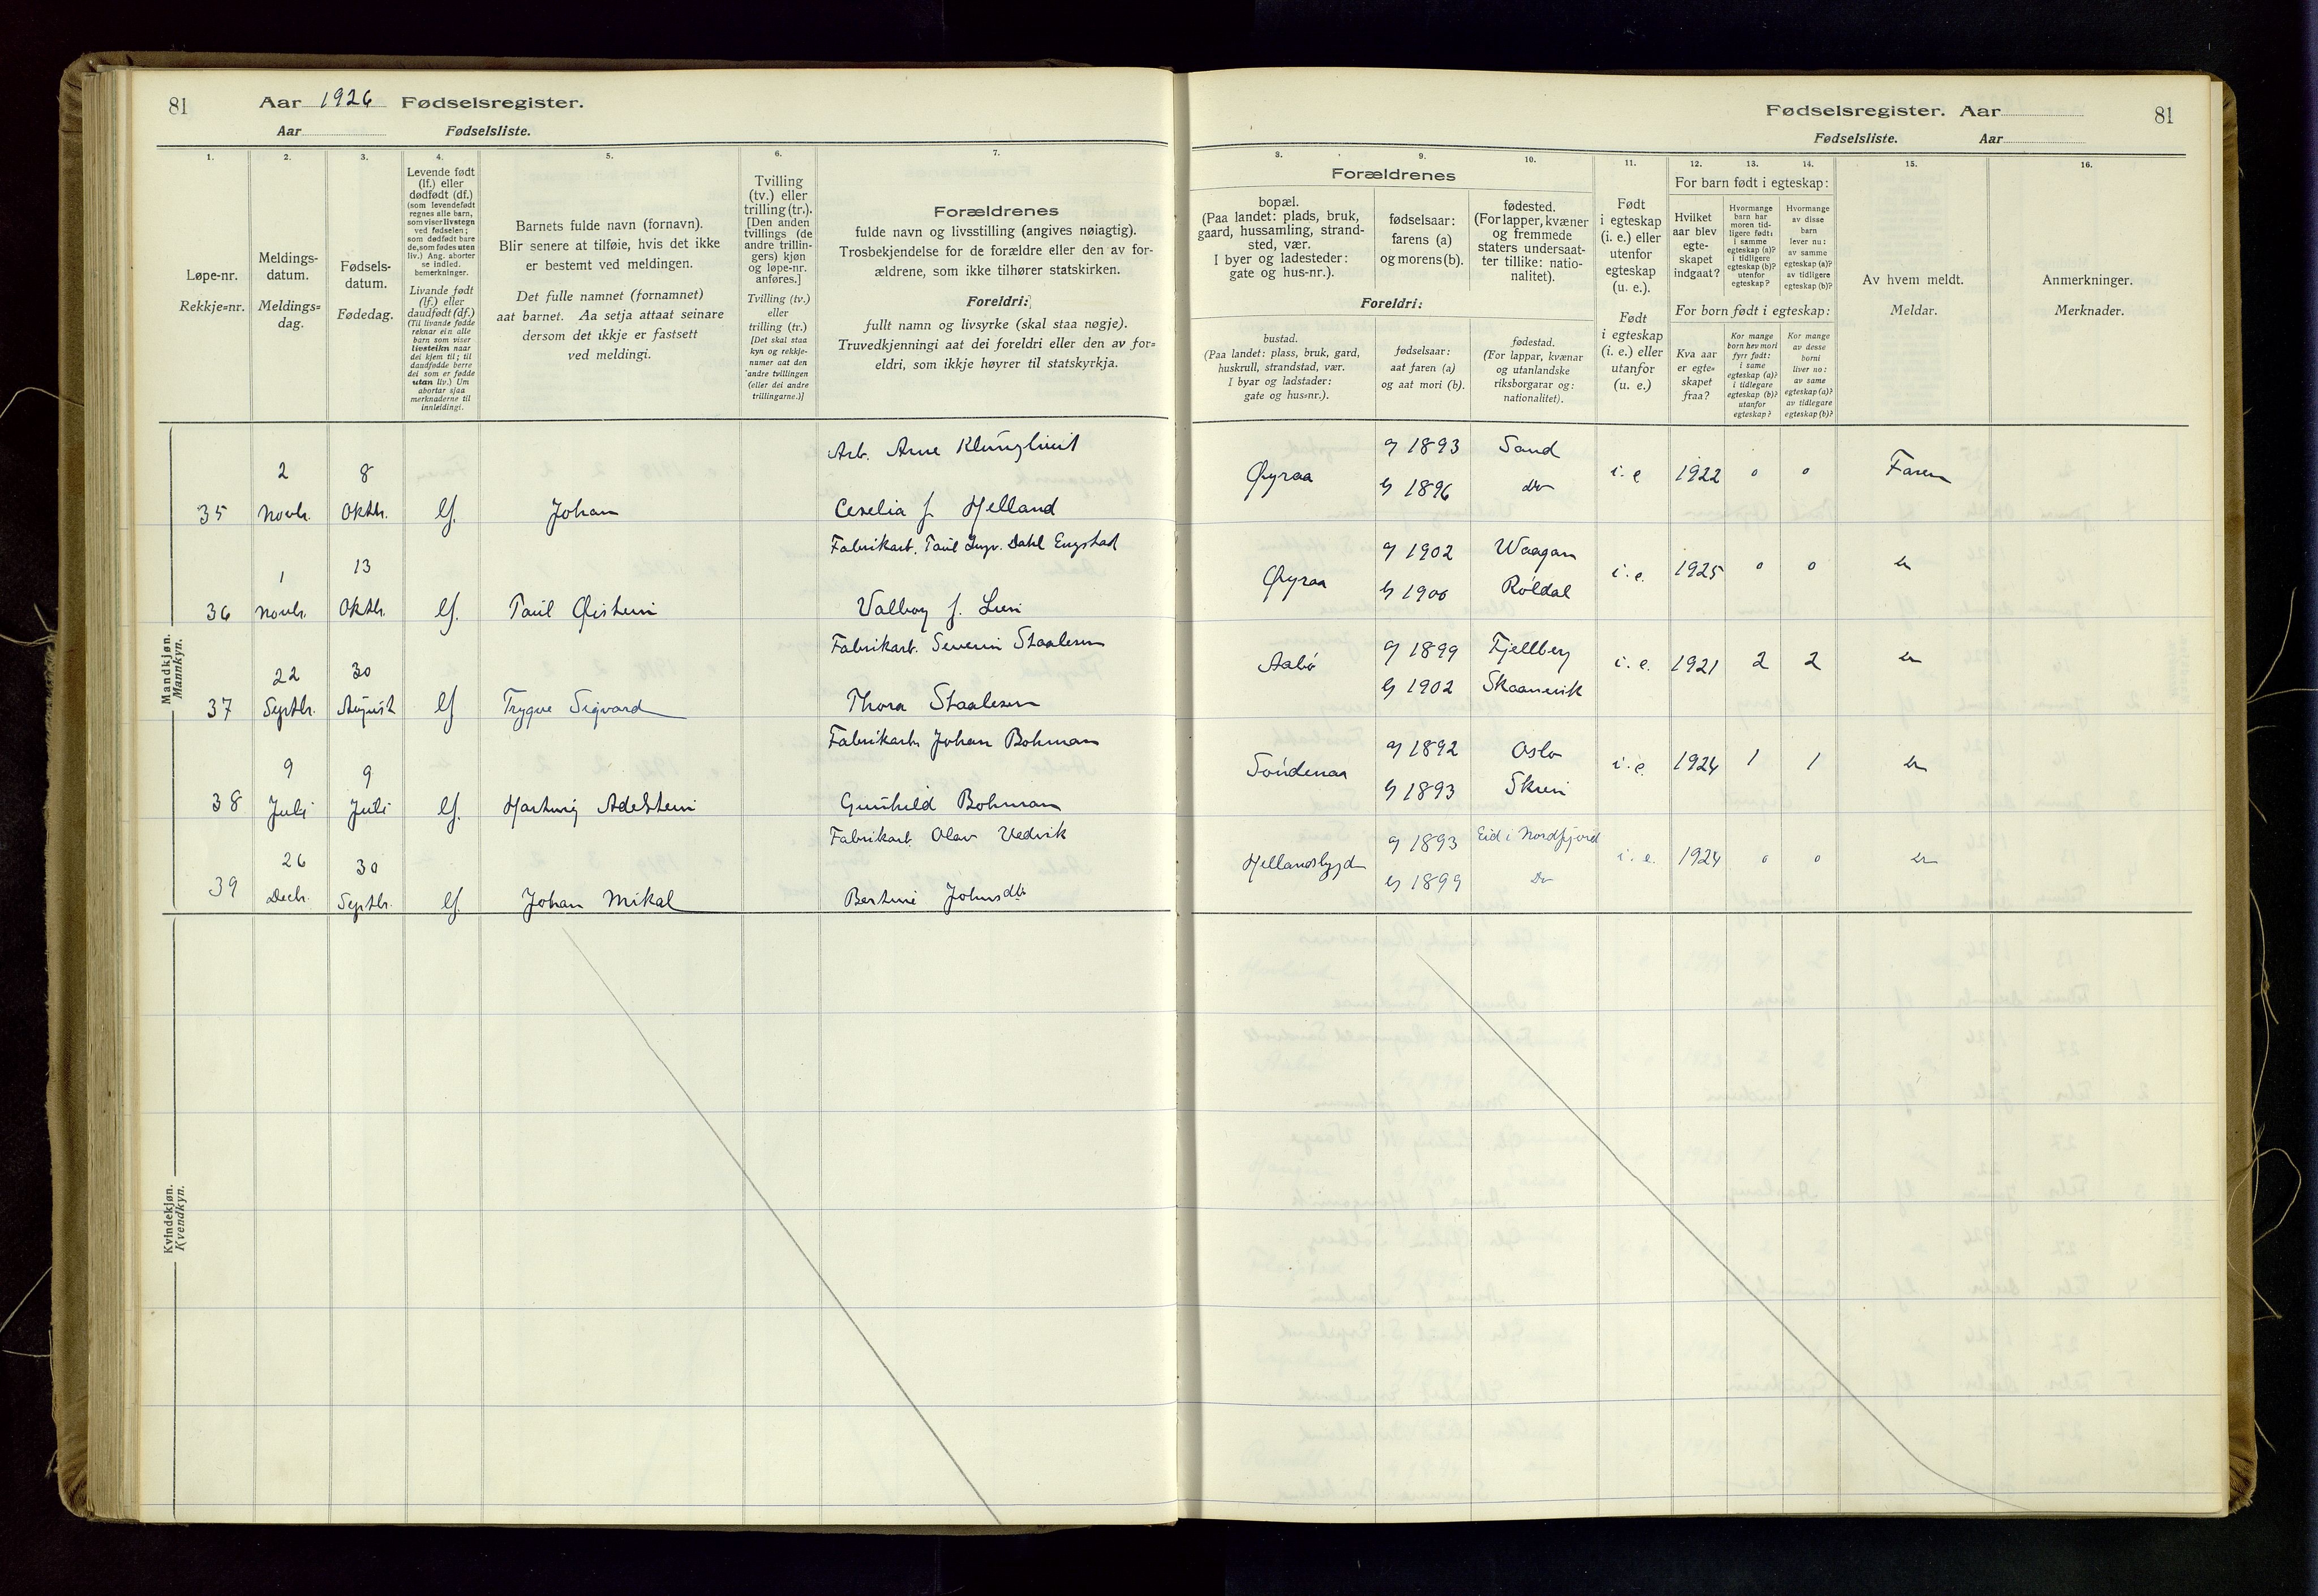 81
Aar 1926 Fødselsregister.
Aar Fødselsliste.
1.
2.
3.
4.
5.
6.
7.
Løpe-nr.
Rekkje=nr.
Meldings-
datum.
Meldings=
dag.
Fødsels-
datum.
Fødedag.
Levende født
(lf.) eller
dødfødt (df.)
(som levendefødt
regnes alle barn,
som viser livstegn
ved fødselen;
som dødfødt bare
de, som fødes uten
liv.) Ang. aborter
se indled.
bemerkninger.
Livande født
(lf.) eller
daudfødt (df.)
(Til livande fødde
reknar ein alle
barn som viser
livsteikn naar
dei kjem til; til
daudfødde berre
dei som er fødde
utan liv.) Um
abortar sjaa
merknaderne til
innleidingi.
Barnets fulde navn (fornavn).
Blir senere at tilføie, hvis det ikke
er bestemt ved meldingen.
Det fulle namnet (fornamnet)
aat barnet. Aa setja attaat seinare
dersom det ikkje er fastsett
ved meldingi.
Tvilling
(tv.) eller
trilling (tr.).
[Den anden
tvillings (de
andre trillin-
gers) kjøn
og løpe-nr.
anføres.]
Tvilling (tv.)
eller
trilling (tr.)
[Det skal staa
kyn og rekkje-
numer aat den
andre tvillingen
(eller dei andre
trillingarne.)]
Forældrenes
fulde navn og livsstilling (angives nøiagtig).
Trosbekjendelse for de forældre eller den av for-
ældrene, som ikke tilhører statskirken.
Foreldri:
fullt namn og livsyrke (skal staa nøgje).
Truvedkjenningi aat dei foreldri eller den av for=
eldri, som ikkje høyrer til statskyrkja.
Mandkjøn.
Mannkyn.
35
2
Novbr.
8
Oktbr.
lf.
Johan
Arb. Arne
f. Helland
36
1
Novbr.
13
Oktbr.
lf.
Øistein
Fabrikarb. Dahl Engstad
Valborg f.
37
22
Septbr.
30
August
lf
Trygve Sigvard
Fabrikarb. Severin Staalesen
Thora Staalesen
38
9
Juli
9
Juli
lf.
Hartvig Adelstein
Fabrikarb. Johan Bohman
Gunhild Bohman
39
26
Decbr.
30
Septbr.
lf.
Johan Mikal
Fabrikarb. Olav Vedvik
Bertine Johnsdtr.
Kvindekjøn.
Kvendkyn.
Fødselsregister. Aar
81
Fødselsliste. Aar
8.
9.
10.
11.
12.
13.
14.
15.
16.
Forældrenes
bopæl.
(Paa landet: plads, bruk,
gaard, hussamling, strand-
sted, vær.
I byer og ladesteder:
gate og hus-nr.).
fødselsaar:
farens (a)
og morens (b).
fødested.
(For lapper, kvæner
og fremmede
staters undersaat-
ter tillike: natio-
nalitet).
Foreldri:
bustad.
(Paa landet: plass, bruk, gard,
huskrull, strandstad, vær.
I byar og ladstader:
gate og hus=nr.).
fødselsaar:
aat faren (a)
og aat mori (b).
fødestad.
(For lappar, kvænar
og utanlandske
riksborgarar og:
nationalitet).
Født
i egteskap
(i. e.) eller
utenfor
egteskap
(u. e.).
Født
i egteskap
(i. e.) eller
utanfor
(u. e.)
For barn født i egteskap:
Hvilket
aar blev
egte-
skapet
indgaat?
Hvormange
barn har
moren tid-
ligere født:
i samme
egteskap (a)?
i tidligere
egteskap (b)?
utenfor
egteskap?
Hvormange
av disse
barn
lever nu:
av samme
egteskap (a)?
av tidligere
egteskap (b)?
For born født i egteskap:
Kva aar
er egte=
skapet
fraa?
Kor mange
born hev mori
fyrr født:
i same
egteskap (a)?
i tidlegare
egteskap (b)?
utanfor
egteskap?
Kor mange
av desse
borni
liver no:
av same
egteskap (a)?
av tidlegare
egteskap (b)?
Av hvem meldt.
Meldar.
Anmerkninger.
Merknader.
Øyraa
a 1893
b 1896
Sand
do
i. e
1922
0
0
Faren
Øyraa
a 1902
b 1900
Waagan
Röldal
i. e.
1925
0
0
do
Aabö
a 1899
b 1902
Fjellberg
Skaanevik
i. e.
1921
2
2
do
Söndenaa
a 1892
b 1893
Oslo
i. e.
1924
1
1
do
Hellandsbygd
a 1893
b 1899
Eid i Nordfjord
Do
i. e.
1924
0
0
do